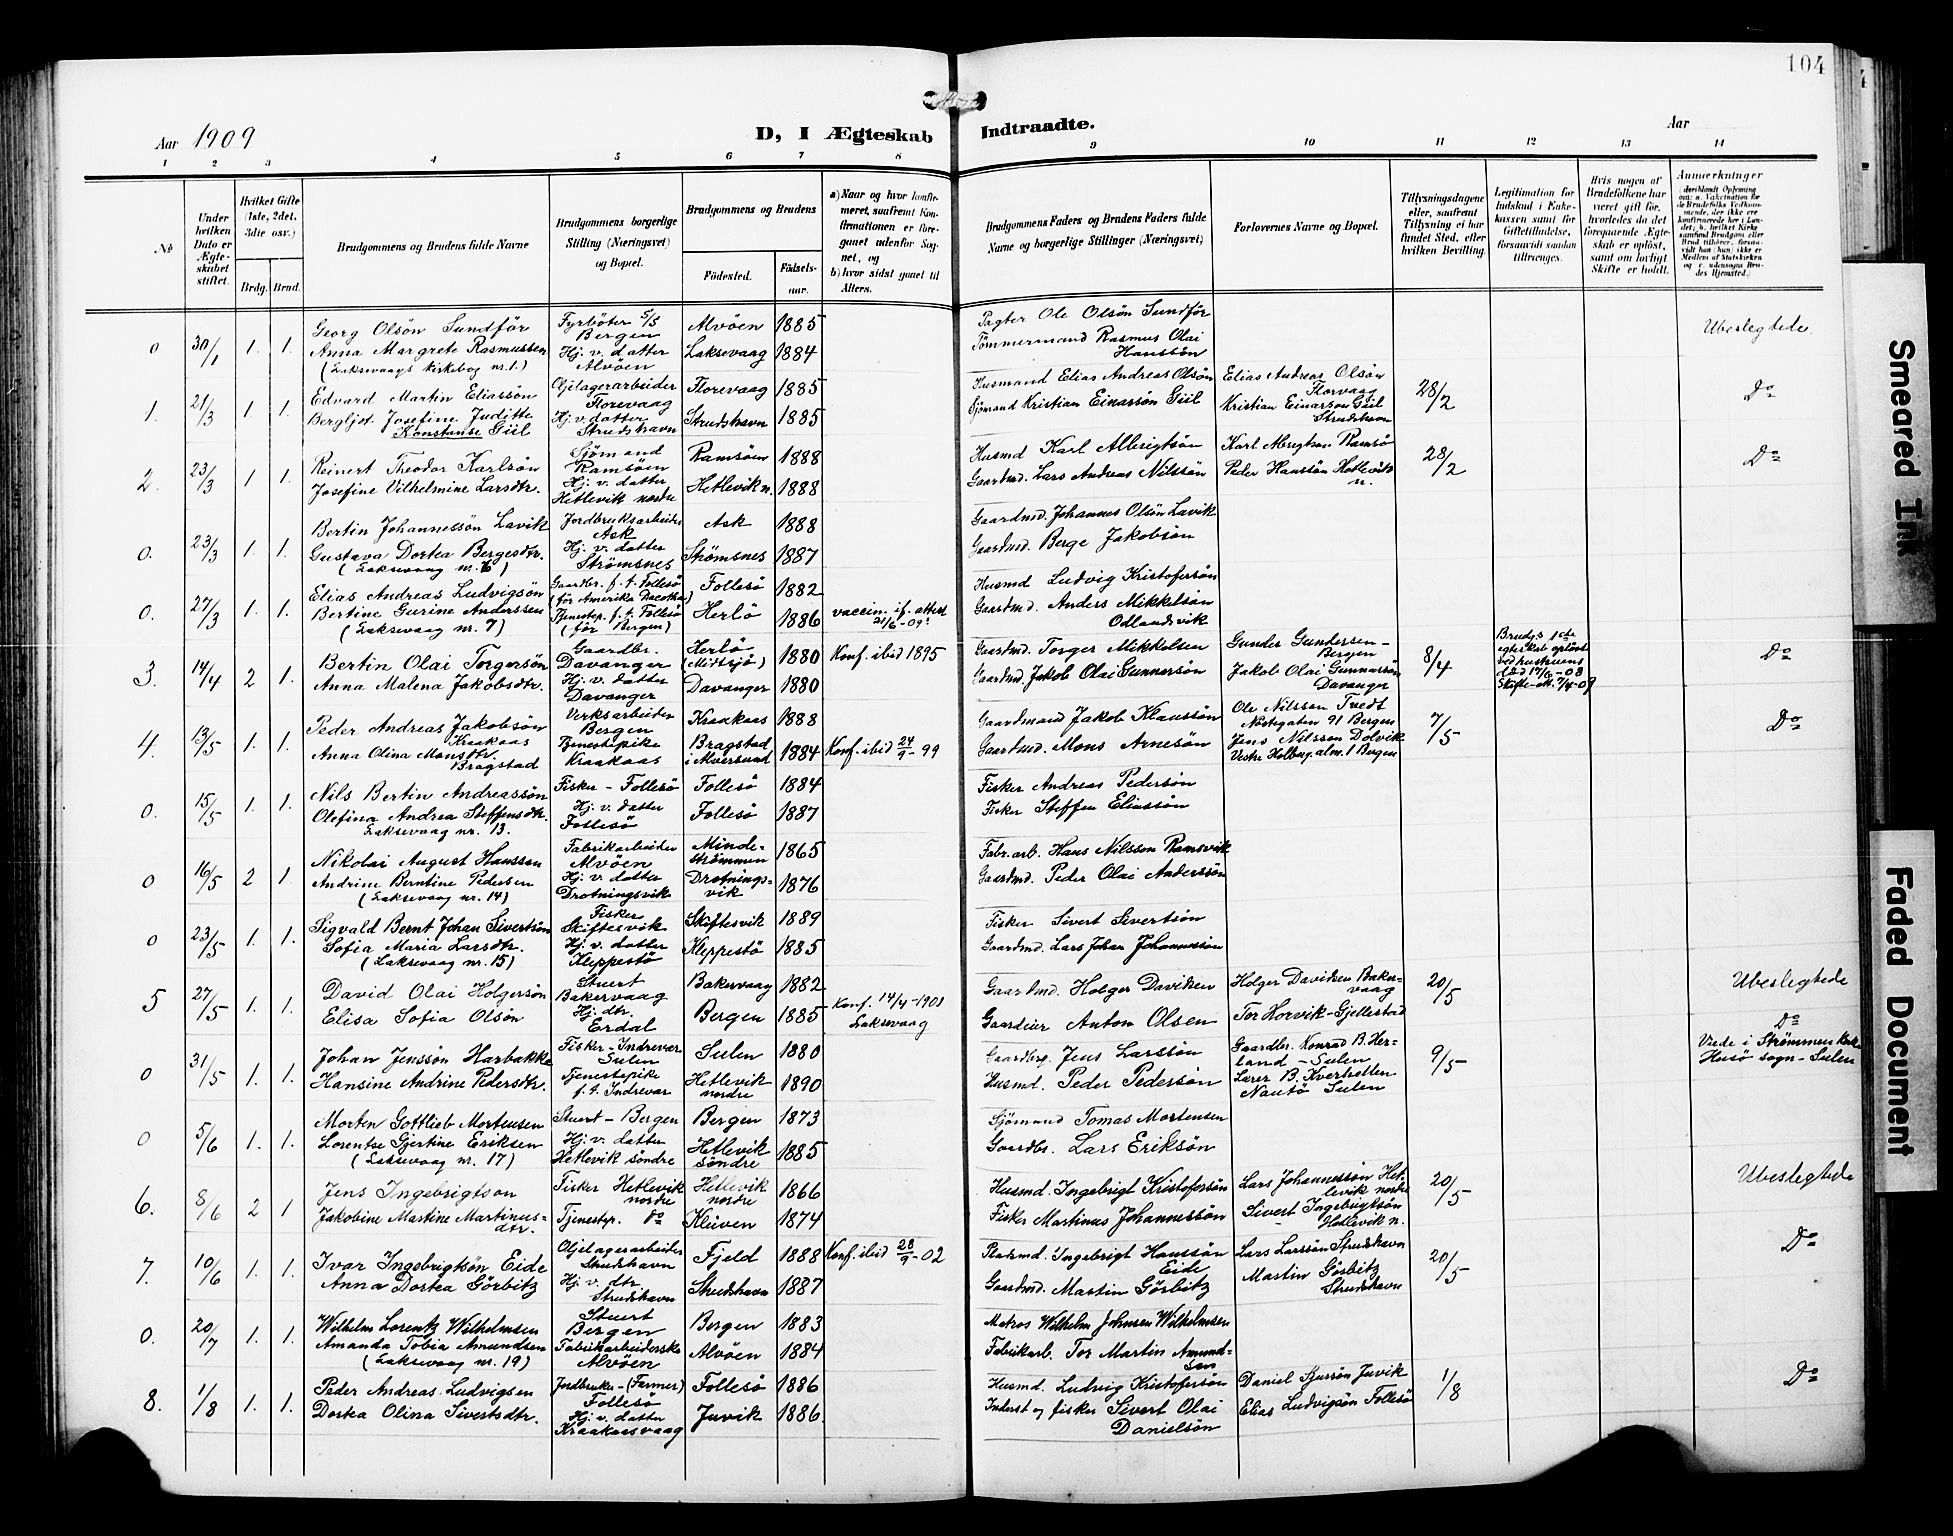 104
Aar 1909
D, I Ægteskab Indtraadte.
Aar
1 2 3 4 5 6 7 8 9 10 11 12 13 14
№
Under hvilken Dato er Ægteskabet stiftet.
Hvilket Gifte (1ste, 2det, 3die osv.)
Brdg. Brud.
Brudgommens og Brudens fulde Navne
Brudgommens borgerlige Stilling (Næringsvei) og Bopæl.
Brudgommens og Brudens
Födested. Födsels-aar.
a) Naar og hvor konfirmeret, saafremt Konfirmationen er foregaaet udenfor Sognet, og
b) hvor sidst gaaet til Alters.
Brudgommens Faders og Brudens Faders fulde Navne og borgerlige Stillinger (Næringsvei)
Forlovernes Navne og Bopæl.
Tillysningsdagene eller, saafremt Tillysning ei har fundet Sted, efter hvilken Bevilling.
Legitimation for Indskud i Enkekassen samt for Giftetilladelse, forsaavidt saadan tiltrænges.
Hvis nogen af Brudefolkene har været gift för, hvorledes da det foregaaende Ægteskab er oplöst, samt om lovligt Skifte er holdt.
Anmærkninger
0 30/1 1. 1.
Georg Olsön Sundför
Anna Margrete Rasmussen
(Laksevaags kirkebog nr. 1.)
Fyrböter S/S
Bergen
Hj. v. datter
Alvöen
Alvöen 1885
Laksevaag 1884
Pagter Ole Olsön Sundför
Tömmermand Rasmus Olai
Hanssön
Ubeslegtede
1. 21/3 1. 1.
Edvard Martin Eliassön
Bergljot Josefine Juditte
Konstanse Giil
Oljelagerarbeider
Florevaag
Hj. v. datter
Strudshavn
Florevaag 1885
Strudshavn 1885
Husmand Elias Andreas Olsön
Sjömand Kristian Einarssön Giil
Elias Andreas Olsön
Florvaag
Kristian Einarsson Giil
Strudshavn
28/2
Do
2. 23/3 1 1.
Reinert Theodor Karlsön
Josefine Vilhelmine Larsdtr.
Sjömand
Ramsöen
Hj. v. datter
Hetlevik nordre
Ramsöen 1888
Hetlevik n. 1888
Husmd Karl Albrigtsön
Gaardmd. Lars Andreas Nilssön
Karl Abrigtson Ramsö
Peder Hanssön Hetlevik
n.
28/2
Do
0. 23/3 1. 1.
Bertin Johannessön Lavik
Gustava Dortea Bergesdtr.
(Laksevaag nr. 6)
Jordbruksarbeider
Ask
Hj. v. datter
Strömsnes
Ask 1888
Strömsnes 1887
Gaardmd. Johannes Olsön Lavik
Gaardmd. Berge Jakobsön
0. 27/3 1. 1.
Elias Andreas Ludvigsön
Bertine Gurine Anderssen
(Laksevaag nr. 7)
Gaardbr. f. t. Follesö
(för Amerika Dacotha)
Tjenestep. f. t. Follesö
(för Bergen)
Follesö 1882
Herlö 1886
vaccin. if. attest
21/6-09.
Husmd Ludvig Kristofersön
Gaardmd. Anders Mikkelsön
Odlandsvik
3. 14/4 2 1.
Bertin Olai Torgersön
Anna Malena Jakobsdtr.
Gaardbr.
Davanger
Hj. v. datter
Davanger
Herlö
(Midtsjö) 1880
Davanger 1880
Konf. ibid 1895
Gaardmd. Torger Mikkelsen
Gaardmd. Jakob Olai Gunnarsön
Gunder Gundersen -
Bergen
Jakob Olai Gunnarsön
Davanger
8/4
Brudgs 1ste
egteskab oplöst
ved hustruens
död 17/6-08
Skifte-att. 7/4-09
Do
4. 13/5 1. 1.
Peder Andreas Jakobsön
Kraakaas
Anna Olina Monsdtr.
Bragstad
Verksarbeider
Bergen
Tjenestepike
Kraakaas
Kraakaas 1888
Bragstad
i Alversund 1884
Konf. ibid 24/9-99
Gaardmand Jakob Klaussön
Gaardmd. Mons Arnesön
Ole Nilsson Tvedt
Nöstegaten 91 Bergen
Jens Nilsson Dolvik
Vestre Holberg alm. 1 Bergen
7/5
Do
0. 15/5 1. 1.
Nils Bertin Andreassön
Olefina Andrea Steffensdtr.
Laksevaag nr. 13.
Fisker - Follesö
Hj. v. datter
Follesö
Follesö 1884
Follesö 1887
Fisker Andreas Pedersön
Fisker Steffen Eliassön
0 16/5 2 1.
Nikolai August Hanssen
Andrine Berntine Pedersen
(Laksevaag nr. 14)
Fabrikarbeider
Alvöen
Hj. v. datter
Drotningsvik
Minde-
strömmen 1865
Drotnings-
vik 1876
Fabr. arb. Hans Nilsson Ramsvik
Gaardmd. Peder Olai Anderssön
0 23/5 1. 1.
Sigvald Bernt Johan Sivertsön
Sofia Maria Larsdtr.
(Laksevaag nr. 15)
Fisker
Skiftesvik
Hj. v. datter
Kleppestö
Skiftesvik 1889
Kleppestö 1885
Fisker Sivert Sivertsön
Gaardmd. Lars Johan Johannessön
5 27/5 1. 1.
David Olai Holgersön
Elisa Sofia Olsön
Stuert
Bakervaag
Hj. dtr.
Erdal
Bakervaag 1882
Bergen 1885
Konf. 14/4-1901
Laksevaag
Gaardmd. Holger Daviken
Gaardeier Anton Olsen
Holger Davidsen Baker-
vaag
Tor Horvik - Gjellestad
20/5
Ubeslegtede
0 31/5 1. 1.
Johan Jenssön Harbakke
Hansine Andrine Pedersdtr.
Fisker - Indrevær
Sulen
Tjenestepike
f. t. Indrevær
Sulen 1880
Hetlevik
nordre 1890
Gaardbr. Jens Larssön
Husmd. Peder Pedersön
Gaardbr. Konrad B. Her-
land - Sulen
Lærer B. Kverhellen
Nautö Sulen
9/5
Do
Viede i Strömmen kirke
Husö sogn - Sulen
0 5/6 1. 1.
Morten Gottlieb Mortensen
Lorentse Gjertine Eriksen
(Laksevaag nr. 17)
Stuert - Bergen
Hj. v. datter
Hetlevik söndre
Bergen 1873
Hetlevik
söndre 1885
Sjömand Tomas Mortensen
Gaardbr. Lars Eriksön
6. 8/6 2 1
Jens Ingebrigtson
Jakobine Martine Martinus-
dtr.
Fisker Hetlevik
nordre
Tjenestep. Do
Hetlevik
nordre 1866
Klüven 1874
Husmd. Ingebrigt Kristofersön
Fisker Martinus Johannessön
Lars Johannessön Het-
levik nordre
Sivert Ingebrigtsön
Hetlevik n.
20/5
Ubeslegtede
7. 10/6 1. 1.
Ivar Ingebrigtsön Eide
Anna Dortea Görbitz
Oljelagerarbeider
Strudshavn
Hj. v. dtr.
Strudshavn
Fjeld 1888
Strudshavn 1887
Konf. ibid 28/9-02
Pladsmd. Ingebrigt Hanssön
Eide
Gaardmd. Martin Görbitz
Lars Larssön Strudshavn
Martin Görbitz
Strudshavn
20/5
Do
0. 20/7 1. 1.
Wilhelm Lorentz Wilhelmsen
Amanda Tobia Amundsen
(Laksevaag nr. 19)
Stuert
Bergen
Fabrikarbeiderske
Alvöen
Bergen 1883
Alvöen 1884
Matros Wilhelm Johnsen Wilhelmsen
Fabrikarb. Tor Martin Amund-
sen
8. 1/8 1. 1.
Peder Andreas Ludvigsen
Dortea Olina Sivertsdtr.
Jordbruker - (Farmer)
Follesö
Hj. v. datter
Kraakaasvaag
Follesö 1886
Juvik 1886
Husmd. Ludvig Kristofersön
Inderst og fisker Sivert Olai
Danielsön
Daniel Sjursön Juvik
Elias Ludvigsön Follesö
1/8
Do
Smeared Ink
Faded Document